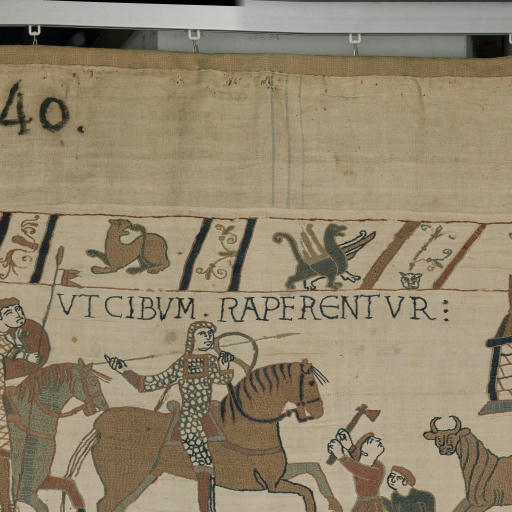 40.
VT CIBVM · RAPERENTVR: